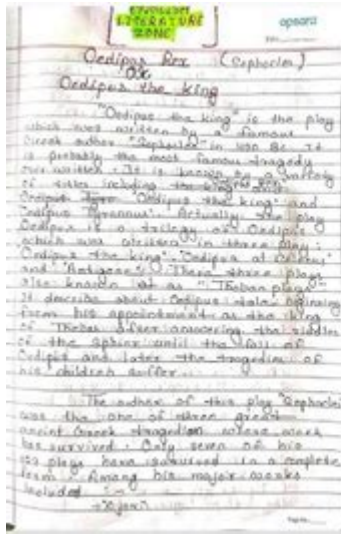 ENGLISH
LITERATURE
ZONE
apsara
Oedipus Rex (Sophocles)
OR
Oedipus the King
"Oedipus the king" is the play
which was written by a famous
Greek author "Sophocles" in 430 BC. It
is probably the most famous tragedy
ever written. It is known by a variety
of titles including the
"Oedipus the king" and
Oedipus Tyrannus". Actually the play
Oedipus is a trilogy of Oedipus
which was written in three play:
Oedipus the king". "Oedipus at
and "Antigone". There three plays
also known as "Theban plays"
It describe about Oedipus tale beginning
from his appointment as the king
of Thebes after answering the riddles
of the sphinx until the fall of
Oedipus and later the tragedies of
his children suffer.
The author of this play "Sophocles
was the one of three great
Greek tragedian whose work
has survived. Only seven of his
123 plays have survived in a complete
form. Among his major works
included :-
"Ajax"